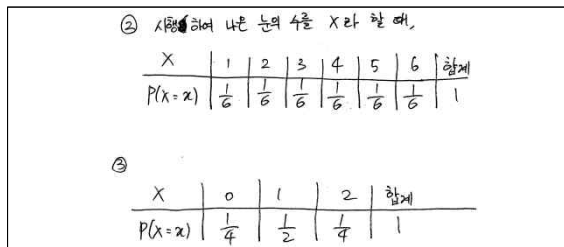 ② 시행하여 나온 눈의 수를 X라 할 때,
X 1 2 3 4 5 6 합계
P(X=x) 1/6 1/6 1/6 1/6 1/6 1/6 1
③
X 0 1 2 합계
P(X=x) 1/4 1/2 1/4 1